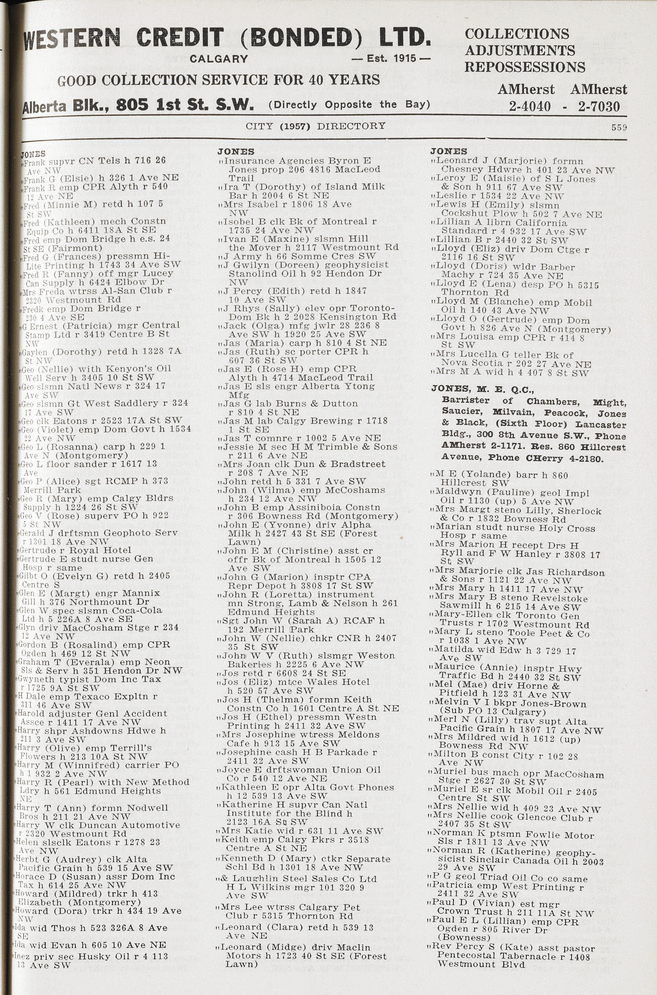 WESTERN CREDIT (BONDED) LTD.
CALGARY — Est. 1915 —
GOOD COLLECTION SERVICE FOR 40 YEARS
Alberta Blk., 805 1st St. S.W. (Directly Opposite the Bay)
COLLECTIONS
ADJUSTMENTS
REPOSSESSIONS
AMherst AMherst
2-4040 - 2-7030
CITY (1957) DIRECTORY 559
JONES
"Frank supvr CN Tels h 716 26
Ave NW
"Frank G (Elsie) h 326 1 Ave NE
"Frank R emp CPR Alyth r 540
12 Ave NE
"Fred (Minnie M) retd h 107 5
St SW
"Fred (Kathleen) mech Constn
Equip Co h 6411 18A St SE
"Fred emp Dom Bridge h e.s. 24
St SE (Fairmont)
"Fred G (Frances) pressmn Hi-
Lite Printing h 1743 34 Ave SW
"Fred R (Fanny) off mgr Lucey
Can Supply h 6424 Elbow Dr
"Mrs Freda wtrss Al-San Club r
2320 Westmount Rd
"Fredk emp Dom Bridge r
230 4 Ave SE
"G Ernest (Patricia) mgr Central
Stamp Ltd r 3419 Centre B St
NW
"Gaylen (Dorothy) retd h 1328 7A
St NW
"Geo (Nellie) with Kenyon's Oil
Well Serv h 3405 10 St SW
"Geo slsmn Natl News r 324 17
Ave SW
"Geo slsmn Gt West Saddlery r 324
17 Ave SW
"Geo clk Eatons r 2523 17A St SW
"Geo (Violet) emp Dom Govt h 1534
22 Ave NW
"Geo L (Rosanna) carp h 229 1
Ave N (Montgomery)
"Geo L floor sander r 1617 13
Ave
"Geo P (Alice) sgt RCMP h 373
Merrill Park
"Geo R (Mary) emp Calgy Bldrs
Supply h 1224 26 St SW
"Geo V (Rose) superv PO h 922
5 St NW
"Gerald J drftsmn Geophoto Serv
r 1301 18 Ave NW
"Gertrude r Royal Hotel
"Gertrude E studt nurse Gen
Hosp r same
"Gilbt O (Evelyn G) retd h 2405
Centre S
"Glen E (Margt) engr Mannix
Gill h 376 Northmount Dr
"Glen W spec slsmn Coca-Cola
Ltd h 5 226A 8 Ave SE
"Glyn driv MacCosham Stge r 234
12 Ave NW
"Gordon B (Rosalind) emp CPR
Ogden h 469 12 St NW
"Graham T (Everala) emp Neon
Sls & Serv h 351 Hendon Dr NW
"Gwyneth typist Dom Inc Tax
r 1725 9A St SW
"H Dale emp Texaco Expltn r
311 46 Ave SW
"Harold adjuster Genl Accident
Assce r 1411 17 Ave NW
"Harry shpr Ashdowns Hdwe h
211 3 Ave SW
"Harry (Olive) emp Terrill's
Flowers h 213 10A St NW
"Harry M (Winnifred) carrier PO
h 1 932 2 Ave NW
"Harry R (Pearl) with New Method
Ldry h 561 Edmund Heights
NE
"Harry T (Ann) formn Nodwell
Bros h 211 21 Ave NW
"Harry W clk Duncan Automotive
r 2320 Westmount Rd
"Helen slsclk Eatons r 1278 23
Ave NW
"Herbt G (Audrey) clk Alta
Pacific Grain h 539 15 Ave SW
"Horace D (Susan) assr Dom Inc
Tax h 614 25 Ave NW
"Howard (Mildred) trkr h 413
Elizabeth (Montgomery)
"Howard (Dora) trkr h 434 19 Ave
NW
"Ida wid Thos h 523 326A 8 Ave
SE
"Ida wid Evan h 605 10 Ave NE
"Inez priv sec Husky Oil r 4 113
13 Ave SW
JONES
"Insurance Agencies Byron E
Jones prop 206 4816 MacLeod
Trail
"Ira T (Dorothy) of Island Milk
Bar h 2004 6 St NE
"Mrs Isabel r 1806 18 Ave
NW
"Isobel B clk Bk of Montreal r
1735 24 Ave NW
"Ivan E (Maxine) slsmn Hill
the Mover h 2117 Westmount Rd
"J Army h 66 Somme Cres SW
"J Gwilyn (Doreen) geophysicist
Stanolind Oil h 92 Hendon Dr
NW
"J Percy (Edith) retd h 1847
10 Ave SW
"J Rhys (Sally) elev opr Toronto-
Dom Bk h 2 2028 Kensington Rd
"Jack (Olga) mfg jwlr 28 236 8
Ave SW h 1920 25 Ave SW
"Jas (Maria) carp h 810 4 St NE
"Jas (Ruth) sc porter CPR h
607 36 St SW
"Jas E (Rose H) emp CPR
Alyth h 4714 MacLeod Trail
"Jas E sls engr Alberta Ytong
Mfg
"Jas G lab Burns & Dutton
r 810 4 St NE
"Jas M lab Calgy Brewing r 1718
1 St SE
"Jas T comnre r 1002 5 Ave NE
"Jessie M sec H M Trimble & Sons
r 211 6 Ave NE
"Mrs Joan clk Dun & Bradstreet
r 208 7 Ave NE
"John retd h 5 331 7 Ave SW
"John (Wilma) emp McCoshams
h 234 12 Ave NW
"John B emp Assiniboia Constn
r 306 Bowness Rd (Montgomery)
"John E (Yvonne) driv Alpha
Milk h 2427 43 St SE (Forest
Lawn)
"John E M (Christine) asst cr
offr Bk of Montreal h 1505 12
Ave SW
"John G (Marion) insptr CPA
Repr Depot h 3808 17 St SW
"John R (Loretta) instrument
mn Strong, Lamb & Nelson h 261
Edmund Heights
"Sgt John W (Sarah A) RCAF h
192 Merrill Park
"John W (Nellie) chkr CNR h 2407
35 St SW
"John W V (Ruth) slsmgr Weston
Bakeries h 2225 6 Ave NW
"Jos retd r 6608 24 St SE
"Jos (Eliz) mtce Wales Hotel
h 520 57 Ave SW
"Jos H (Thelma) formn Keith
Constn Co h 1601 Centre A St NE
"Jos H (Ethel) pressmn Westn
Printing h 2411 32 Ave SW
"Mrs Josephine wtrss Meldons
Cafe h 913 15 Ave SW
"Josephine cash H B Parkade r
2411 32 Ave SW
"Joyce E drftswoman Union Oil
Co r 540 12 Ave NE
"Kathleen E opr Alta Govt Phones
h 12 539 13 Ave SW
"Katherine H supvr Can Natl
Institute for the Blind h
2123 16A St SW
"Mrs Katie wid r 631 11 Ave SW
"Keith emp Calgy Pkrs r 3518
Centre A St NE
"Kenneth D (Mary) ctkr Separate
Schl Bd h 1301 18 Ave NW
"& Laughlin Steel Sales Co Ltd
H L Wilkins mgr 101 320 9
Ave SW
"Mrs Lee wtrss Calgary Pet
Club r 5315 Thornton Rd
"Leonard (Clara) retd h 539 13
Ave NE
"Leonard (Midge) driv Maclin
Motors h 1723 40 St SE (Forest
Lawn)
JONES
"Leonard J (Marjorie) formn
Chesney Hdwre h 401 23 Ave NW
"Leroy E (Maisie) of S L Jones
& Son h 911 67 Ave SW
"Leslie r 1534 22 Ave NW
"Lewis H (Emily) slsmn
Cockshut Plow h 502 7 Ave NE
"Lillian A librn California
Standard r 4 932 17 Ave SW
"Lillian B r 2440 32 St SW
"Lloyd (Eliz) driv Dom Ctge r
2116 16 St SW
"Lloyd (Doris) wldr Barber
Machy r 724 35 Ave NE
"Lloyd E (Lena) desp PO h 5315
Thornton Rd
"Lloyd M (Blanche) emp Mobil
Oil h 140 43 Ave NW
"Lloyd O (Gertrude) emp Dom
Govt h 826 Ave N (Montgomery)
"Mrs Louisa emp CPR r 414 8
St SW
"Mrs Lucella G teller Bk of
Nova Scotia r 202 27 Ave NE
"Mrs M A wid h 4 407 8 St SW
JONES, M. E. Q.C.,
Barrister of Chambers, Might,
Saucier, Milvain, Peacock, Jones
& Black, (Sixth Floor) Lancaster
Bldg., 300 8th Avenue S.W., Phone
AMherst 2-1171. Res. 860 Hillcrest
Avenue, Phone CHerry 4-2180.
"M E (Yolande) barr h 860
Hillcrest SW
"Maldwyn (Pauline) geol Impl
Oil r 1130 (up) 5 Ave NW
"Mrs Margt steno Lilly, Sherlock
& Co r 1832 Bowness Rd
"Marian studt nurse Holy Cross
Hosp r same
"Mrs Marion H recept Drs H
Ryll and F W Hanley r 3808 17
St SW
"Mrs Marjorie clk Jas Richardson
& Sons r 1121 22 Ave NW
"Mrs Mary h 1411 17 Ave NW
"Mrs Mary B steno Revelstoke
Sawmill h 6 215 14 Ave SW
"Mary-Ellen clk Toronto Gen
Trusts r 1702 Westmount Rd
"Mary L steno Toole Peet & Co
r 1038 1 Ave NW
"Matilda wid Edw h 3 729 17
Ave SW
"Maurice (Annie) insptr Hwy
Traffic Bd h 2440 32 St SW
"Mel (Mae) driv Horne &
Pitfield h 123 31 Ave NW
"Melvin V I bkpr Jones-Brown
(Sub PO 13 Calgary)
"Merl N (Lilly) trav supt Alta
Pacific Grain h 1807 17 Ave NW
"Mrs Mildred wid h 1612 (up)
Bowness Rd NW
"Milton B const City r 102 28
Ave NW
"Muriel bus mach opr MacCosham
Stge r 2627 30 St SW
"Muriel E sr clk Mobil Oil r 2405
Centre St SW
"Mrs Nellie wid h 409 23 Ave NW
"Mrs Nellie cook Glencoe Club r
2407 35 St SW
"Norman K ptsmn Fowlie Motor
Sls r 1811 13 Ave NW
"Norman R (Katherine) geophy-
sicist Sinclair Canada Oil h 2003
29 Ave SW
"P G geol Triad Oil Co co same
"Patricia emp West Printing r
2411 32 Ave SW
"Paul D (Vivian) est mgr
Crown Trust h 211 11A St NW
"Paul E L (Lillian) emp CPR
Ogden r 805 River Dr
(Bowness)
"Rev Percy S (Kate) asst pastor
Pentecostal Tabernacle r 1408
Westmount Blvd